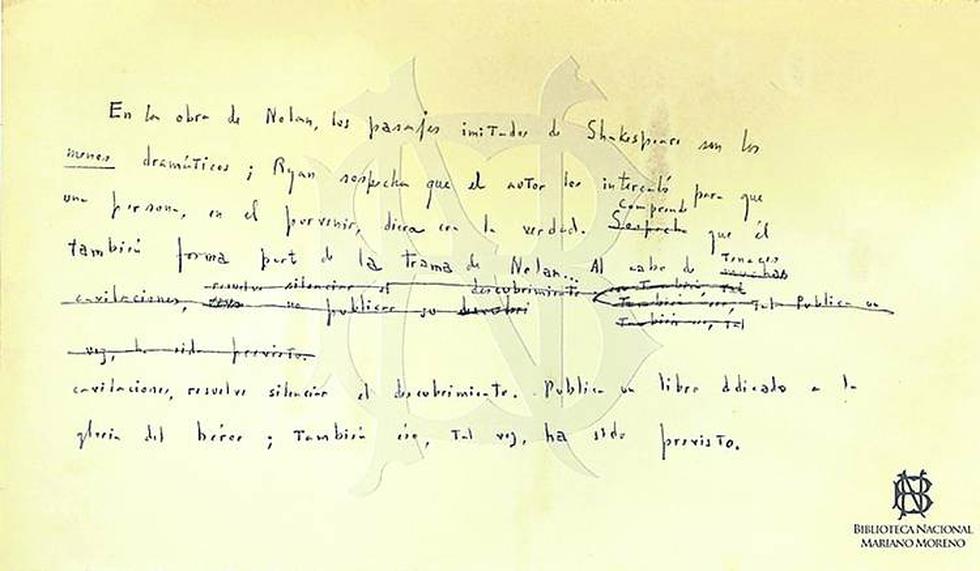 En la obra de Nolan, los pasajes imitados de Shakespeare son los
menos dramáticos ; Ryan sospecha que el autor los intercaló para que
una persona, en el porvenir, diera con la verdad. Sospecha Comprende que él
también forma part de la trama de Nolan... Al cabo de muchas tenaces
resuelve silenciar el descubrimiento
cavilaciones, no publicar su También ese, tal Publica un
También eso, tal
vez, ha sido previsto.
cavilaciones, resuelve silenciar el descubrimiento. Publica un libro ddicado a la
gloria del héroe ; también eso, tal vez, ha sido previsto.
BIBLIOTECA NACIONAL
MARIANO MORENO